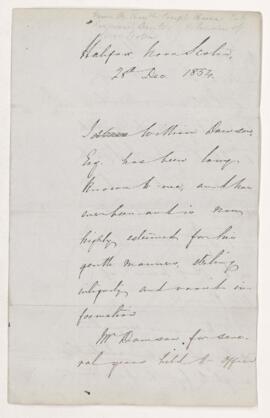 Halifax Nova Scotia,
28th Dec 1854.
William Dawson,
Esq. has been long
known to me, and has
ever been and is now
highly esteemed for his
gentle manners, sterling
integrity and varied in-
formation
Mr Dawson, for seve-
ral years held the office